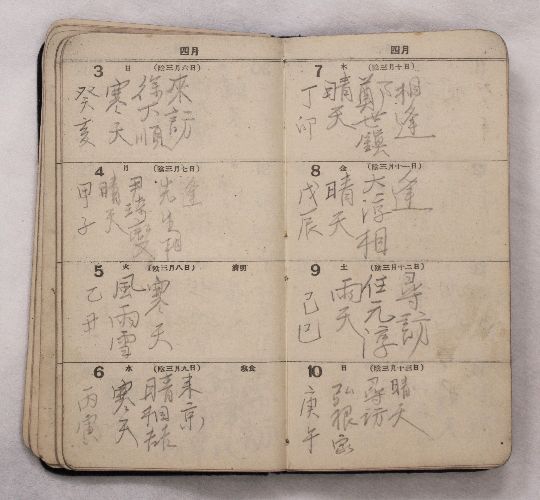 四月
3 日 (陰三月六日)
癸亥
寒天
徐 順
來訪
4 月 (陰三月七日)
甲子
晴天
尹 燮
先生相
逢
5 火 (陰三月八日) 清明
乙丑
風雨雪
寒天
6 水 (陰三月九日) 寒食
丙寅
寒天
晴相
來京
四月
7 木 (陰三月十日)
丁卯
晴天
鄭世鎮
相逢
8 金 (陰三月十一日)
戊辰
晴天
大淳相
逢
9 土 (陰三月十二日)
己巳
雨天
任元淳
尋訪
10 日 (陰三月十三日)
庚午
弘根家
尋訪
晴天